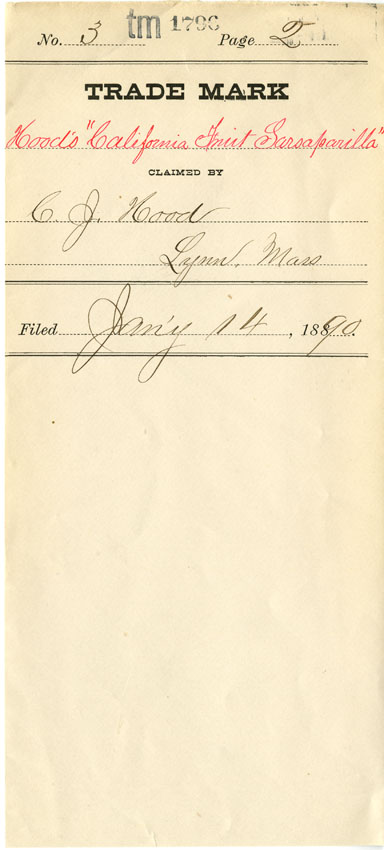 No. 3 tm 1796 Page 2
TRADE MARK
Hood's "California Fruit Sarsaparilla"
CLAIMED BY
C. J. Hood
Lynn, Mass
Filed Jan'y 14, 1890.